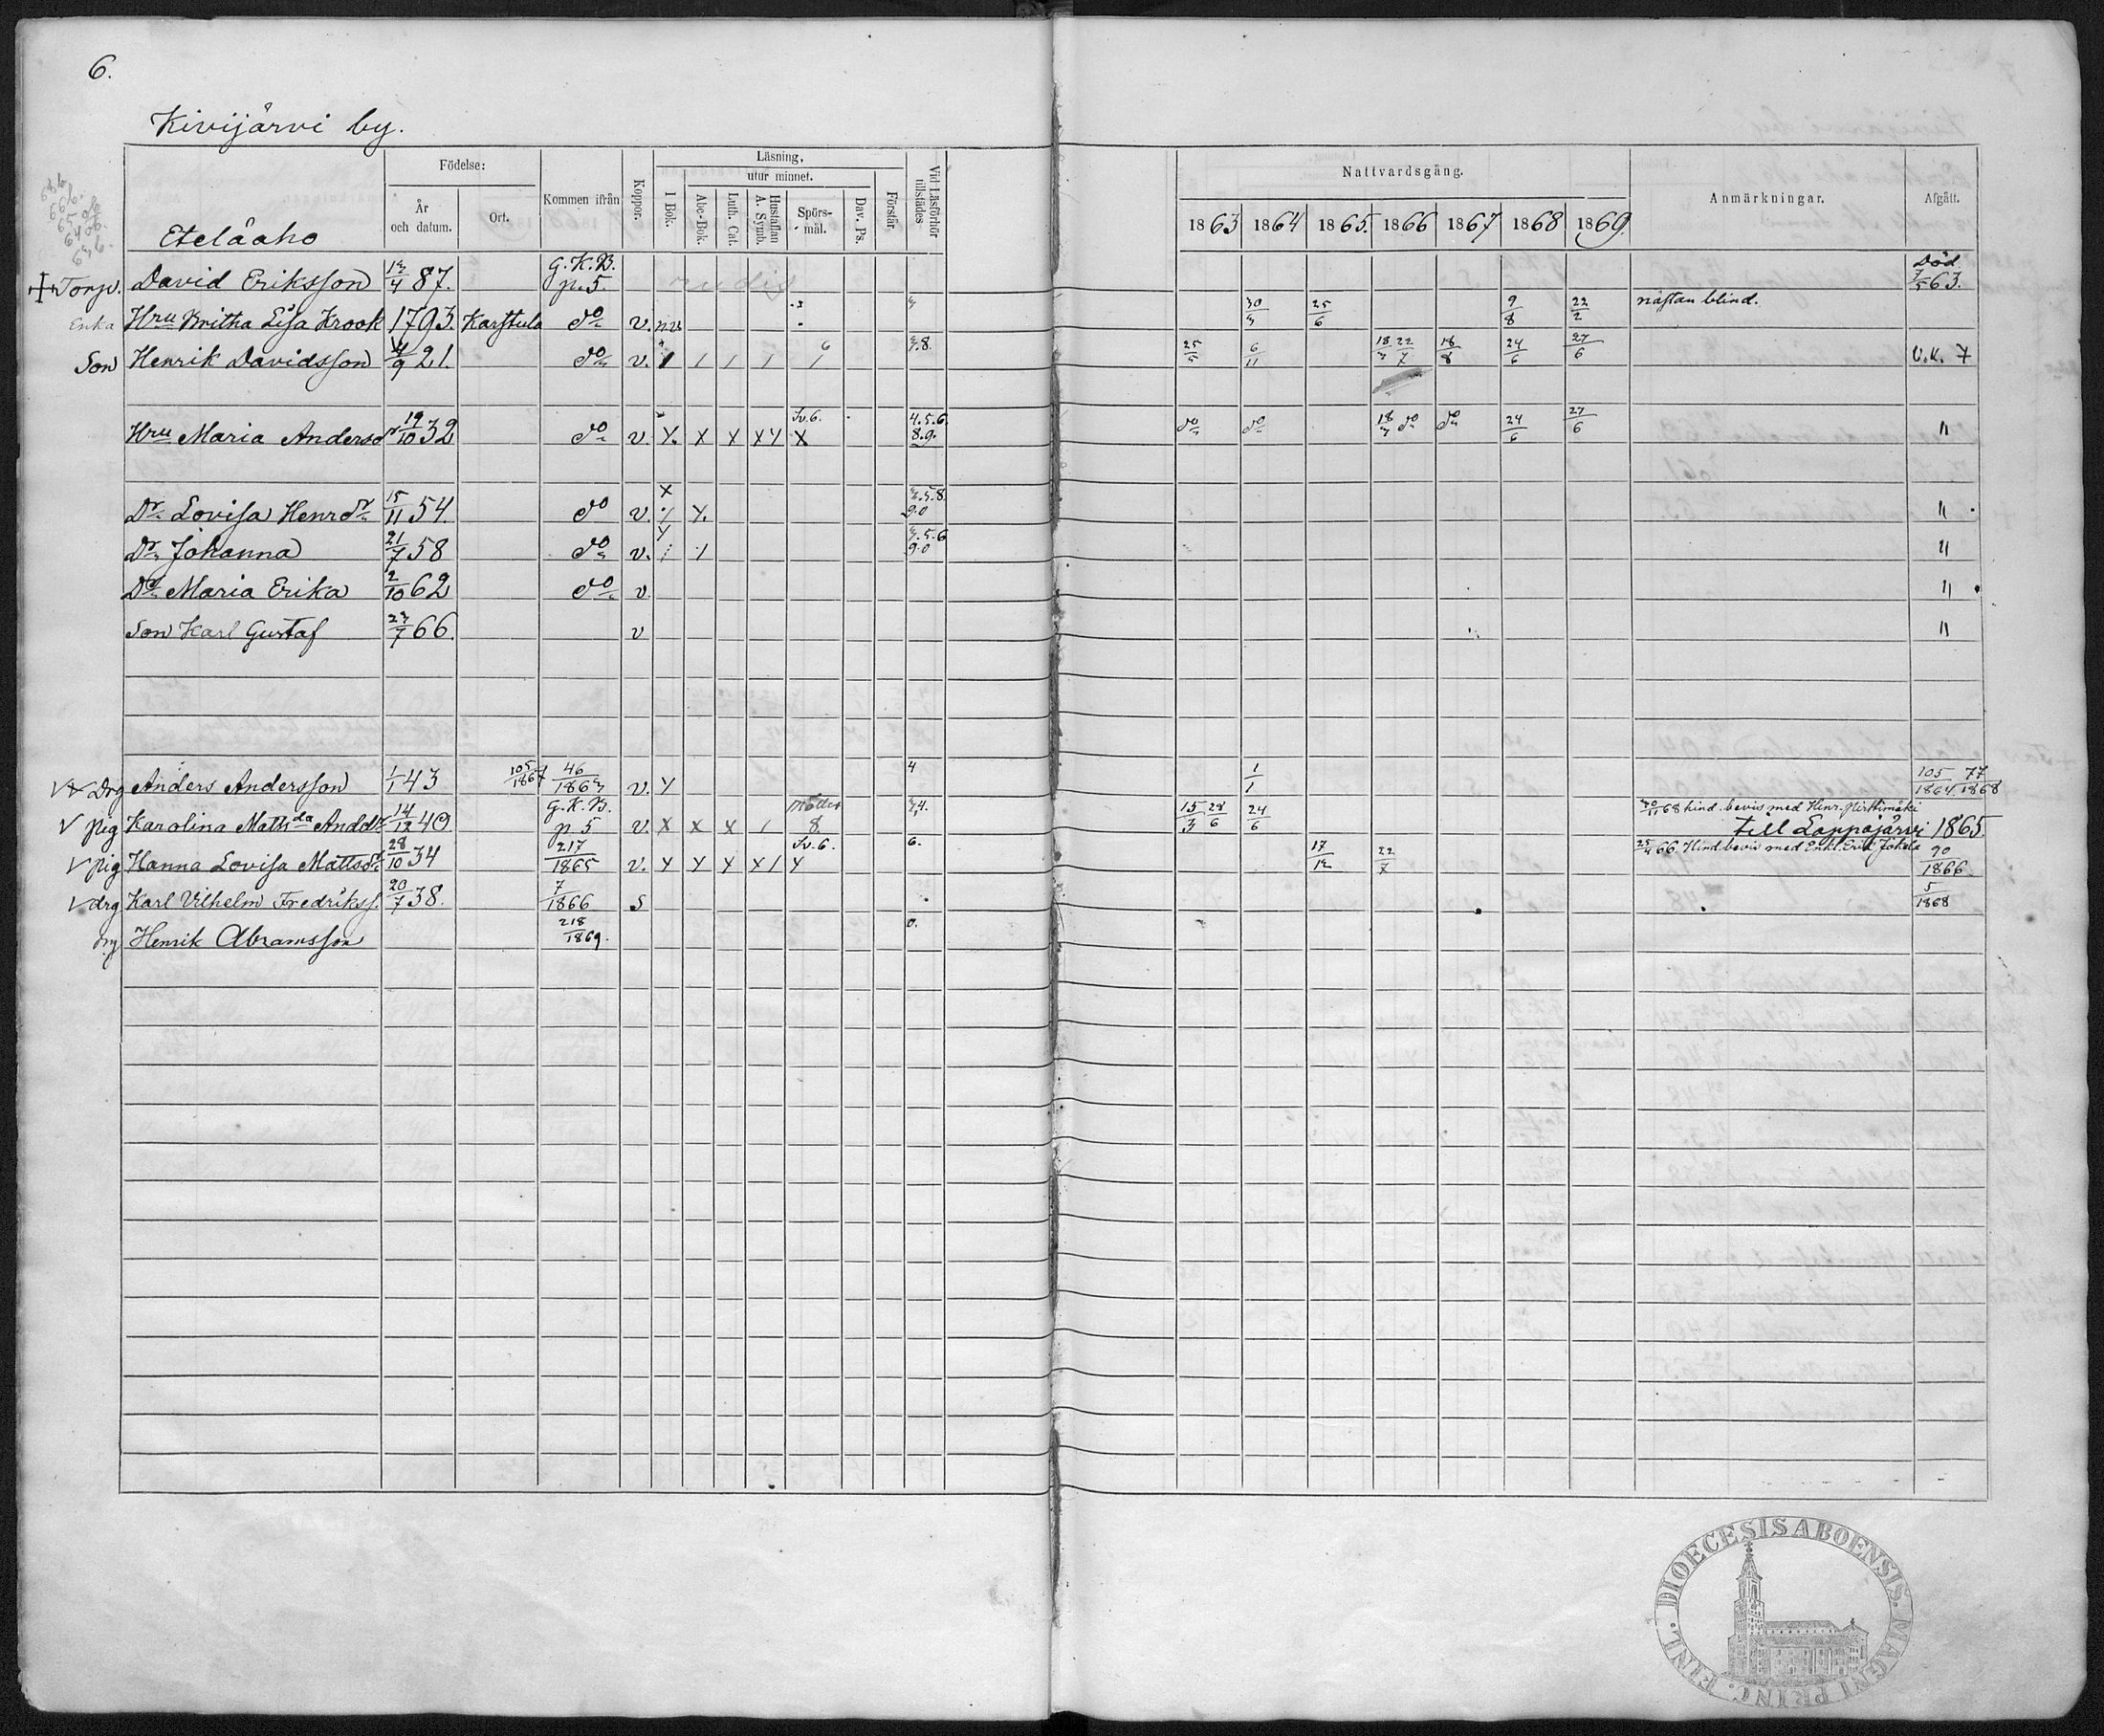 6.
Kivijärvi by.
Födelse: Läsning. Nattvardsgång.
År och datum. Ort. Kommen ifrån Koppor. I Bok. utur minnet. Abc-Bok. Luth. Cat. Hustaflan A. Symb. Spörs-mål. Dav. Ps. Förstår. Vid Läsförhör tillstädes 1863 1864 1865. 1866 1867 1868 1869. Anmärkningar. Afgått.
Eteläaho
Torp. David Eriksson 13/4 87. G. K. B. p. 5. rudis Död 7/5 63.
Enka Hru Britha Lisa Krook 1793. Karstula do v. 30/3 25/6 9/8 22/2 nästan blind.
Son Henrik Davidsson 4/9 21. do v. / / / / / 3.8. 25/5 6/11 18/3 22/7 18/8 24/6 27/6 U.K. 7
Hru Maria Andersdr 19/10 32 do v. Y. X X X Y X Sv. 6. 4.5.6. 8.9. do do 18/3 do do 24/6 27/6 "
Dr Lovisa Henrdr 15/11 54. do v. X Y. 3.5.8. 9.0 "
Dr Johanna 21/7 58 do v. Y 3.5.6 9.0 "
Dr Maria Erika 2/10 62 do v "
Son Karl Gustaf 23/7 66. v "
Drg Anders Andersson 1/1 43 105/1867 46/1863 v. Y 4 1/1 105/1864. 77/1868
Pig Karolina Mathda Anddr 14/12 40 G. K. B. p 5 v. X X X / 8 3.4. 15/3 28/6 24/6 30/11 68 hind. bevis med Henr.
till Lappajärvi 1865
Pig Hanna Lovisa Mattsdr 28/10 34 217/1865 v. Y Y Y X / Y Sv. 6. 6. 17/12 22/7 25/4 66. Hind. bevis med Enkl. Erik Jokela 90/1866
drg Karl Vilhelm Fredrikss. 20/7 38. 7/1866 s 5/1868
drg Henrik Abramsson 218/1869. 0.
FINL. DIOECESIS ABOENSIS. MAGNI PRINC.